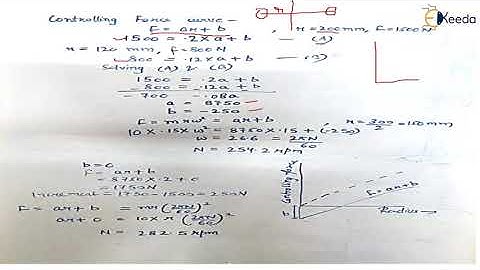 Controlling Force curve -
F = ar + b , r = 200mm, F = 1500N
1500 = .2xa + b — (A)
r = 120 mm, F = 800N
800 = .12xa + b — (B)
Solving (A) & (B)
1500 = .2a + b
800 = .12a + b
- 700 - .08a
a = 8750
b = -250
F = mrω² = ar + b , r = 300/2 = 150mm
10 x .15 x ω² = 8750 x .15 + (-250)
ω = 26.6 = 2πN/60
N = 254.2 rpm
b = 0
F = ar + b
= 8750 x .2 + 0
= 1750N
Increment = 1750 - 1500 = 250N
F = ar + b = mr(2πN/60)²
ar + 0 = 10 x r (2πN/60)²
N = 282.5 rpm
Controlling force
F = ar + b
b
Radius →
Ekeeda